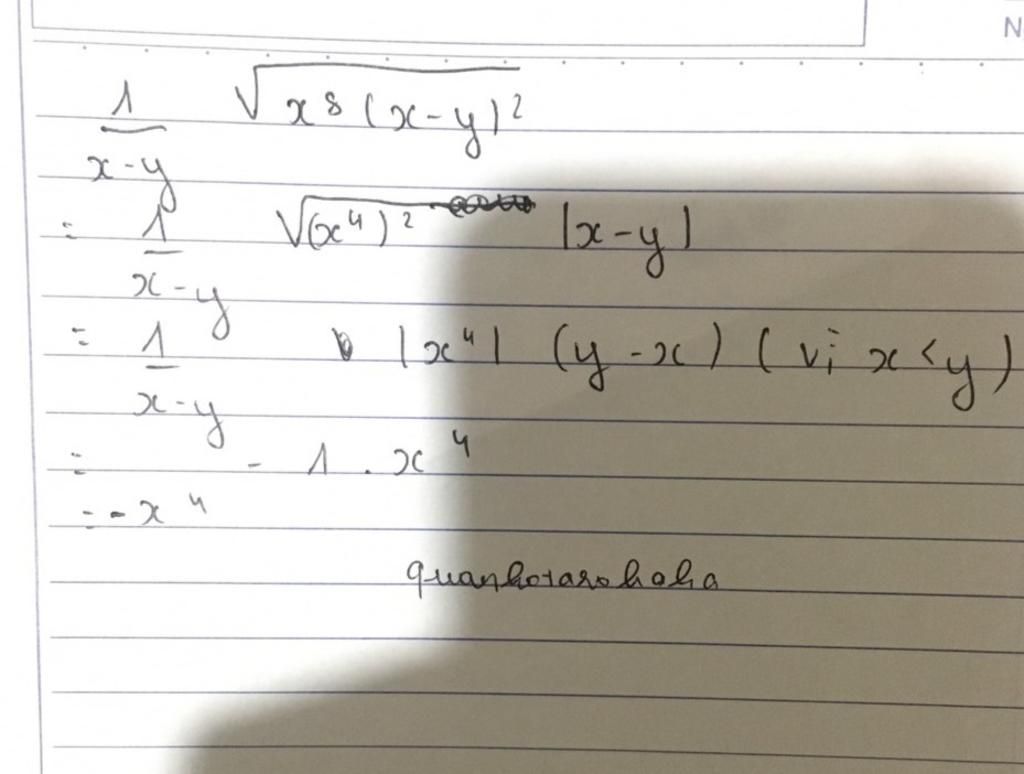 N
1/(x-y) √(x⁸(x-y)²)
= 1/(x-y) √((x⁴)²) |x-y|
= 1/(x-y) |x⁴| (y-x) (vì x<y)
= -1.x⁴
= -x⁴
quanhotarohaha